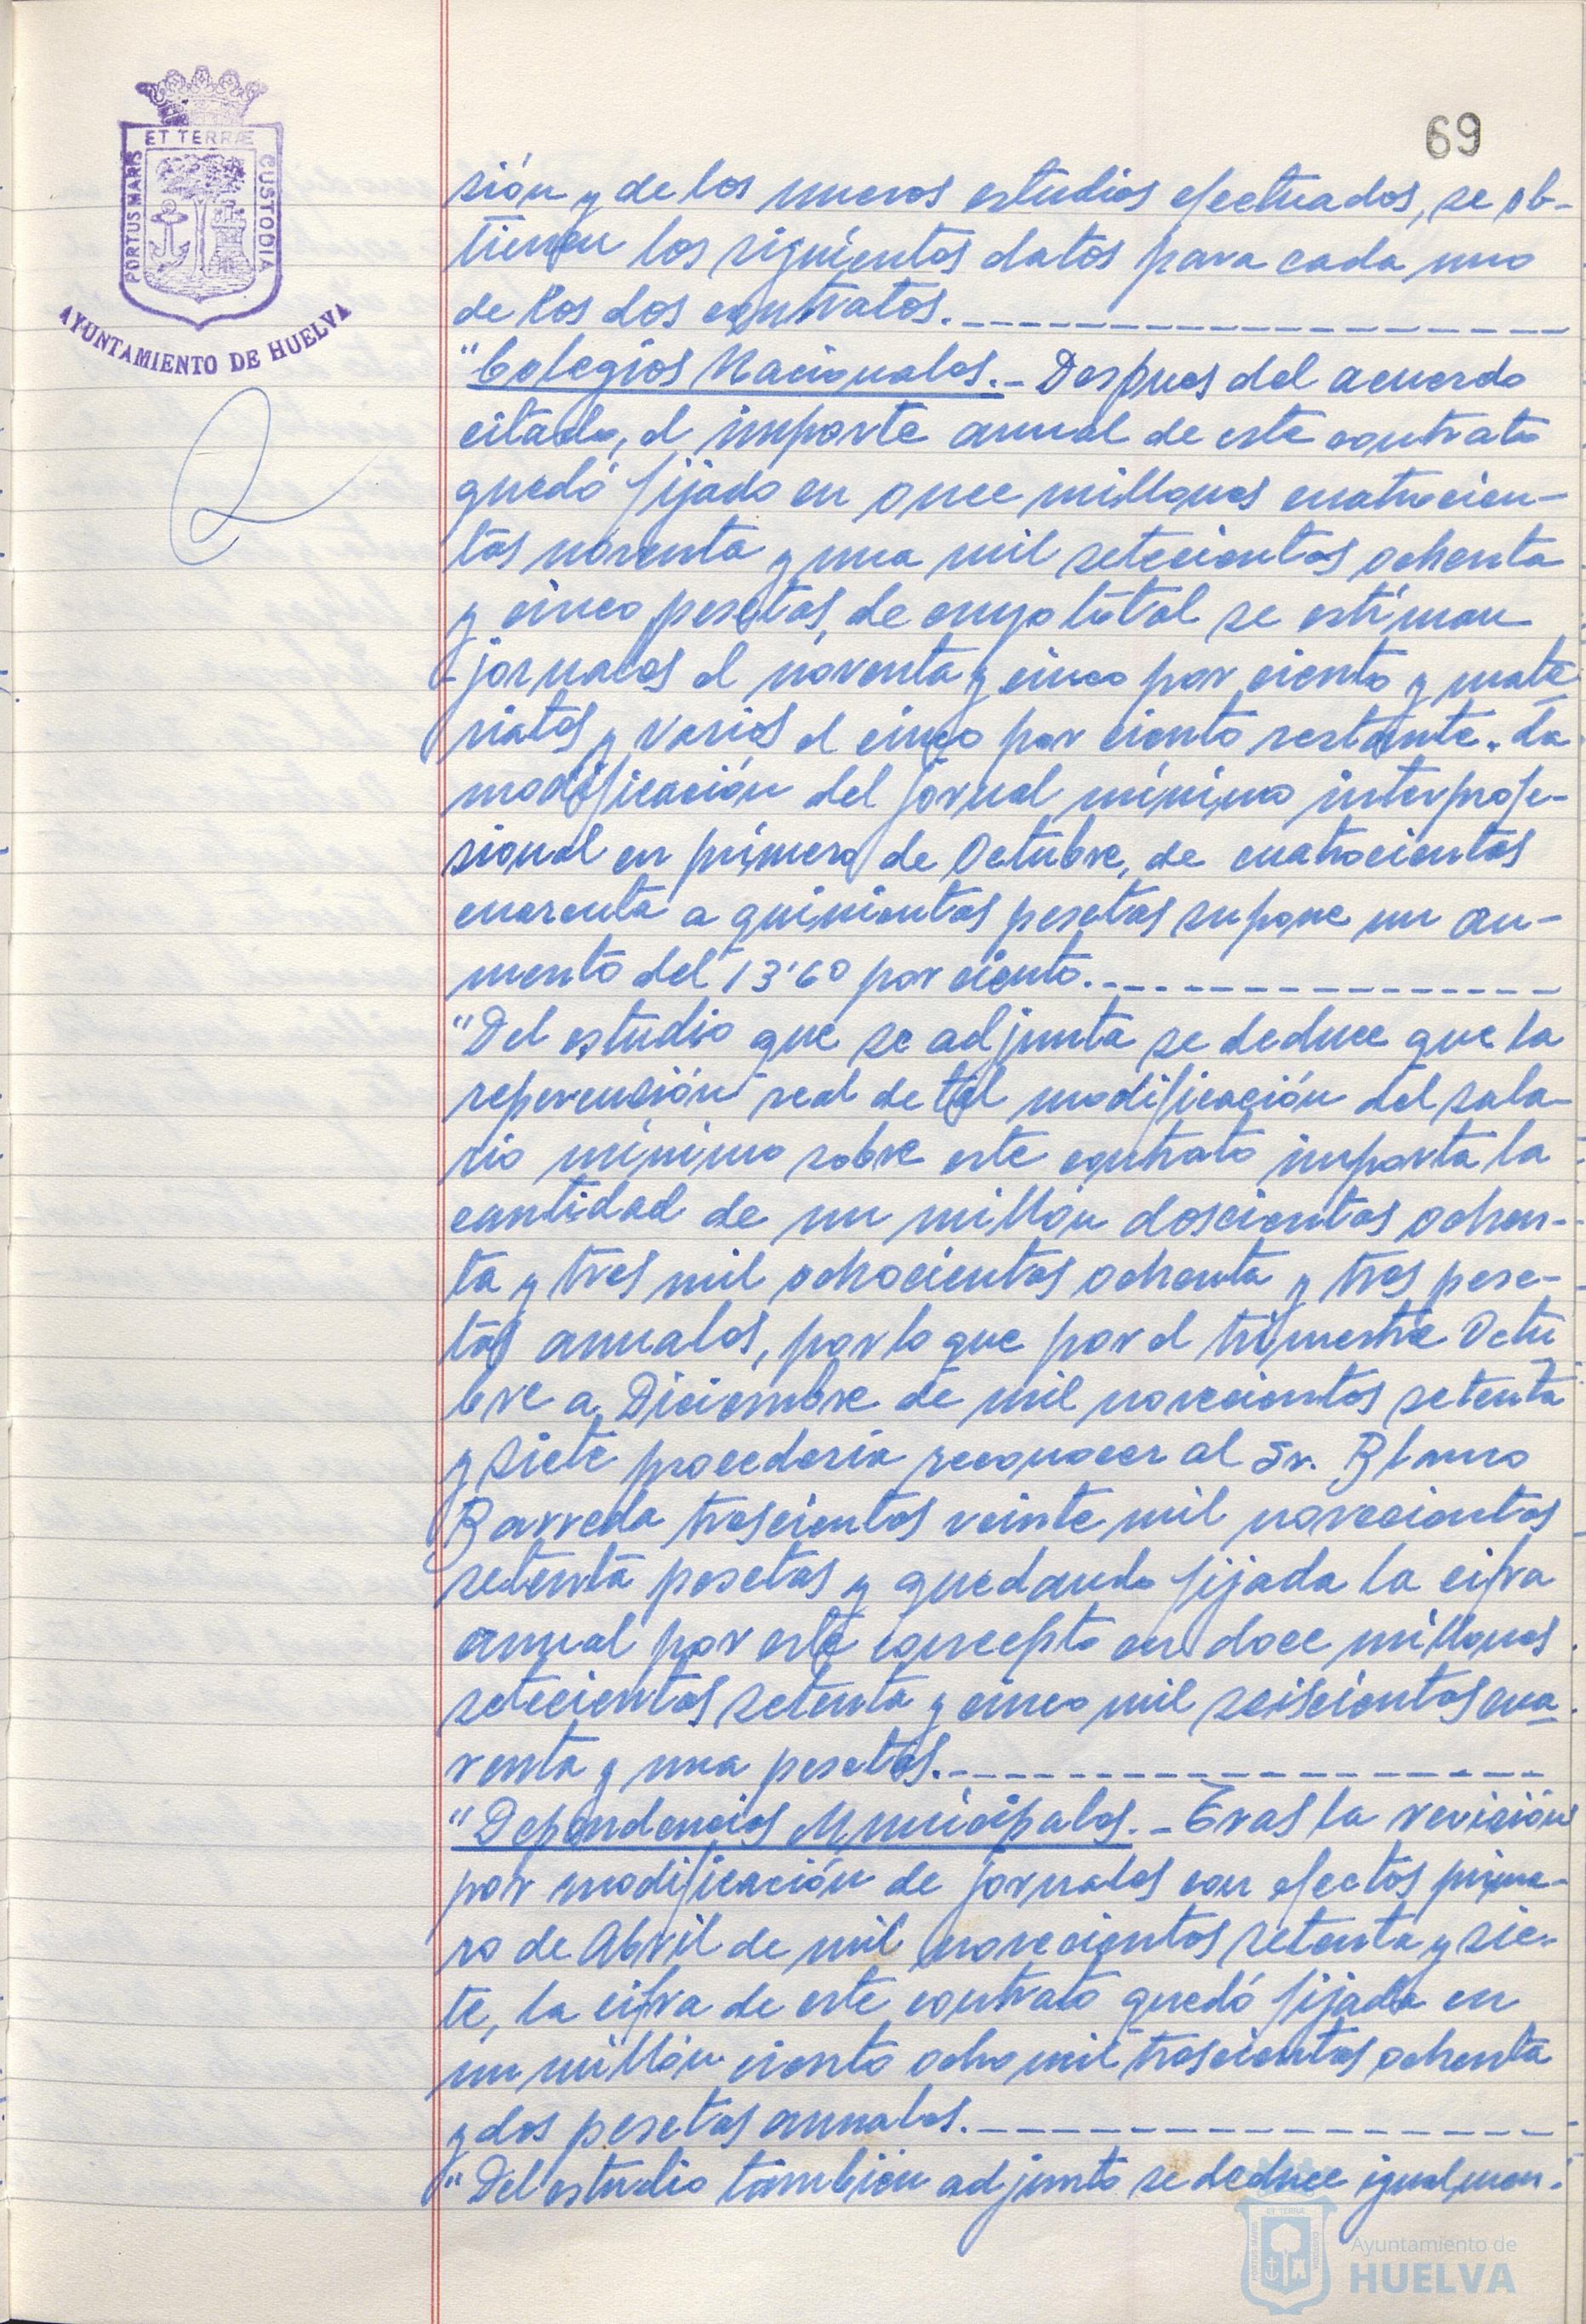 ET TERRÆ
PORTUS MARIS
CUSTODIA
AYUNTAMIENTO DE HUELVA
69
sión y de los nuevos estudios efectuados, se ob-
tienen los siguientes datos para cada uno
de los dos contratos.
"Colegios Nacionales.- Despues del acuerdo
citado, el importe anual de este contrato
quedó fijado en once millones cuatrocien-
tas noventa y una mil setecientas ochenta
y cinco pesetas, de cuyo total se estiman
jornales el noventa y cinco por ciento y mate
riales y varios el cinco por ciento restante. La
modificación del jornal mínimo interprofe-
sional en primero de Octubre, de cuatrocientas
cuarenta a quinientas pesetas supone un au-
mento del 13'60 por ciento.
"Del estudio que se adjunta se deduce que la
repercusión real de tal modificación del sala-
rio mínimo sobre este contrato importa la
cantidad de un millón doscientas ochen-
ta y tres mil ochocientas ochenta y tres pese-
tas anuales, por lo que por el trimestre Octu
bre a Diciembre de mil novecientos setenta
y siete procedería reconocer al Sr. Blanco
Barreda trescientas veinte mil novecientas
setenta pesetas y quedando fijada la cifra
anual por este concepto en doce millones
setecientas setenta y cinco mil seiscientas cua
renta y una pesetas.
"Dependencias Municipales.- Tras la revisión
por modificación de jornales con efectos prime-
ro de Abril de mil novecientos setenta y sie-
te, la cifra de este contrato quedó fijada en
un millón ciento ocho mil trescientas ochenta
y dos pesetas anuales.
"Del estudio también adjunto se deduce igualmen-
Ayuntamiento de
HUELVA